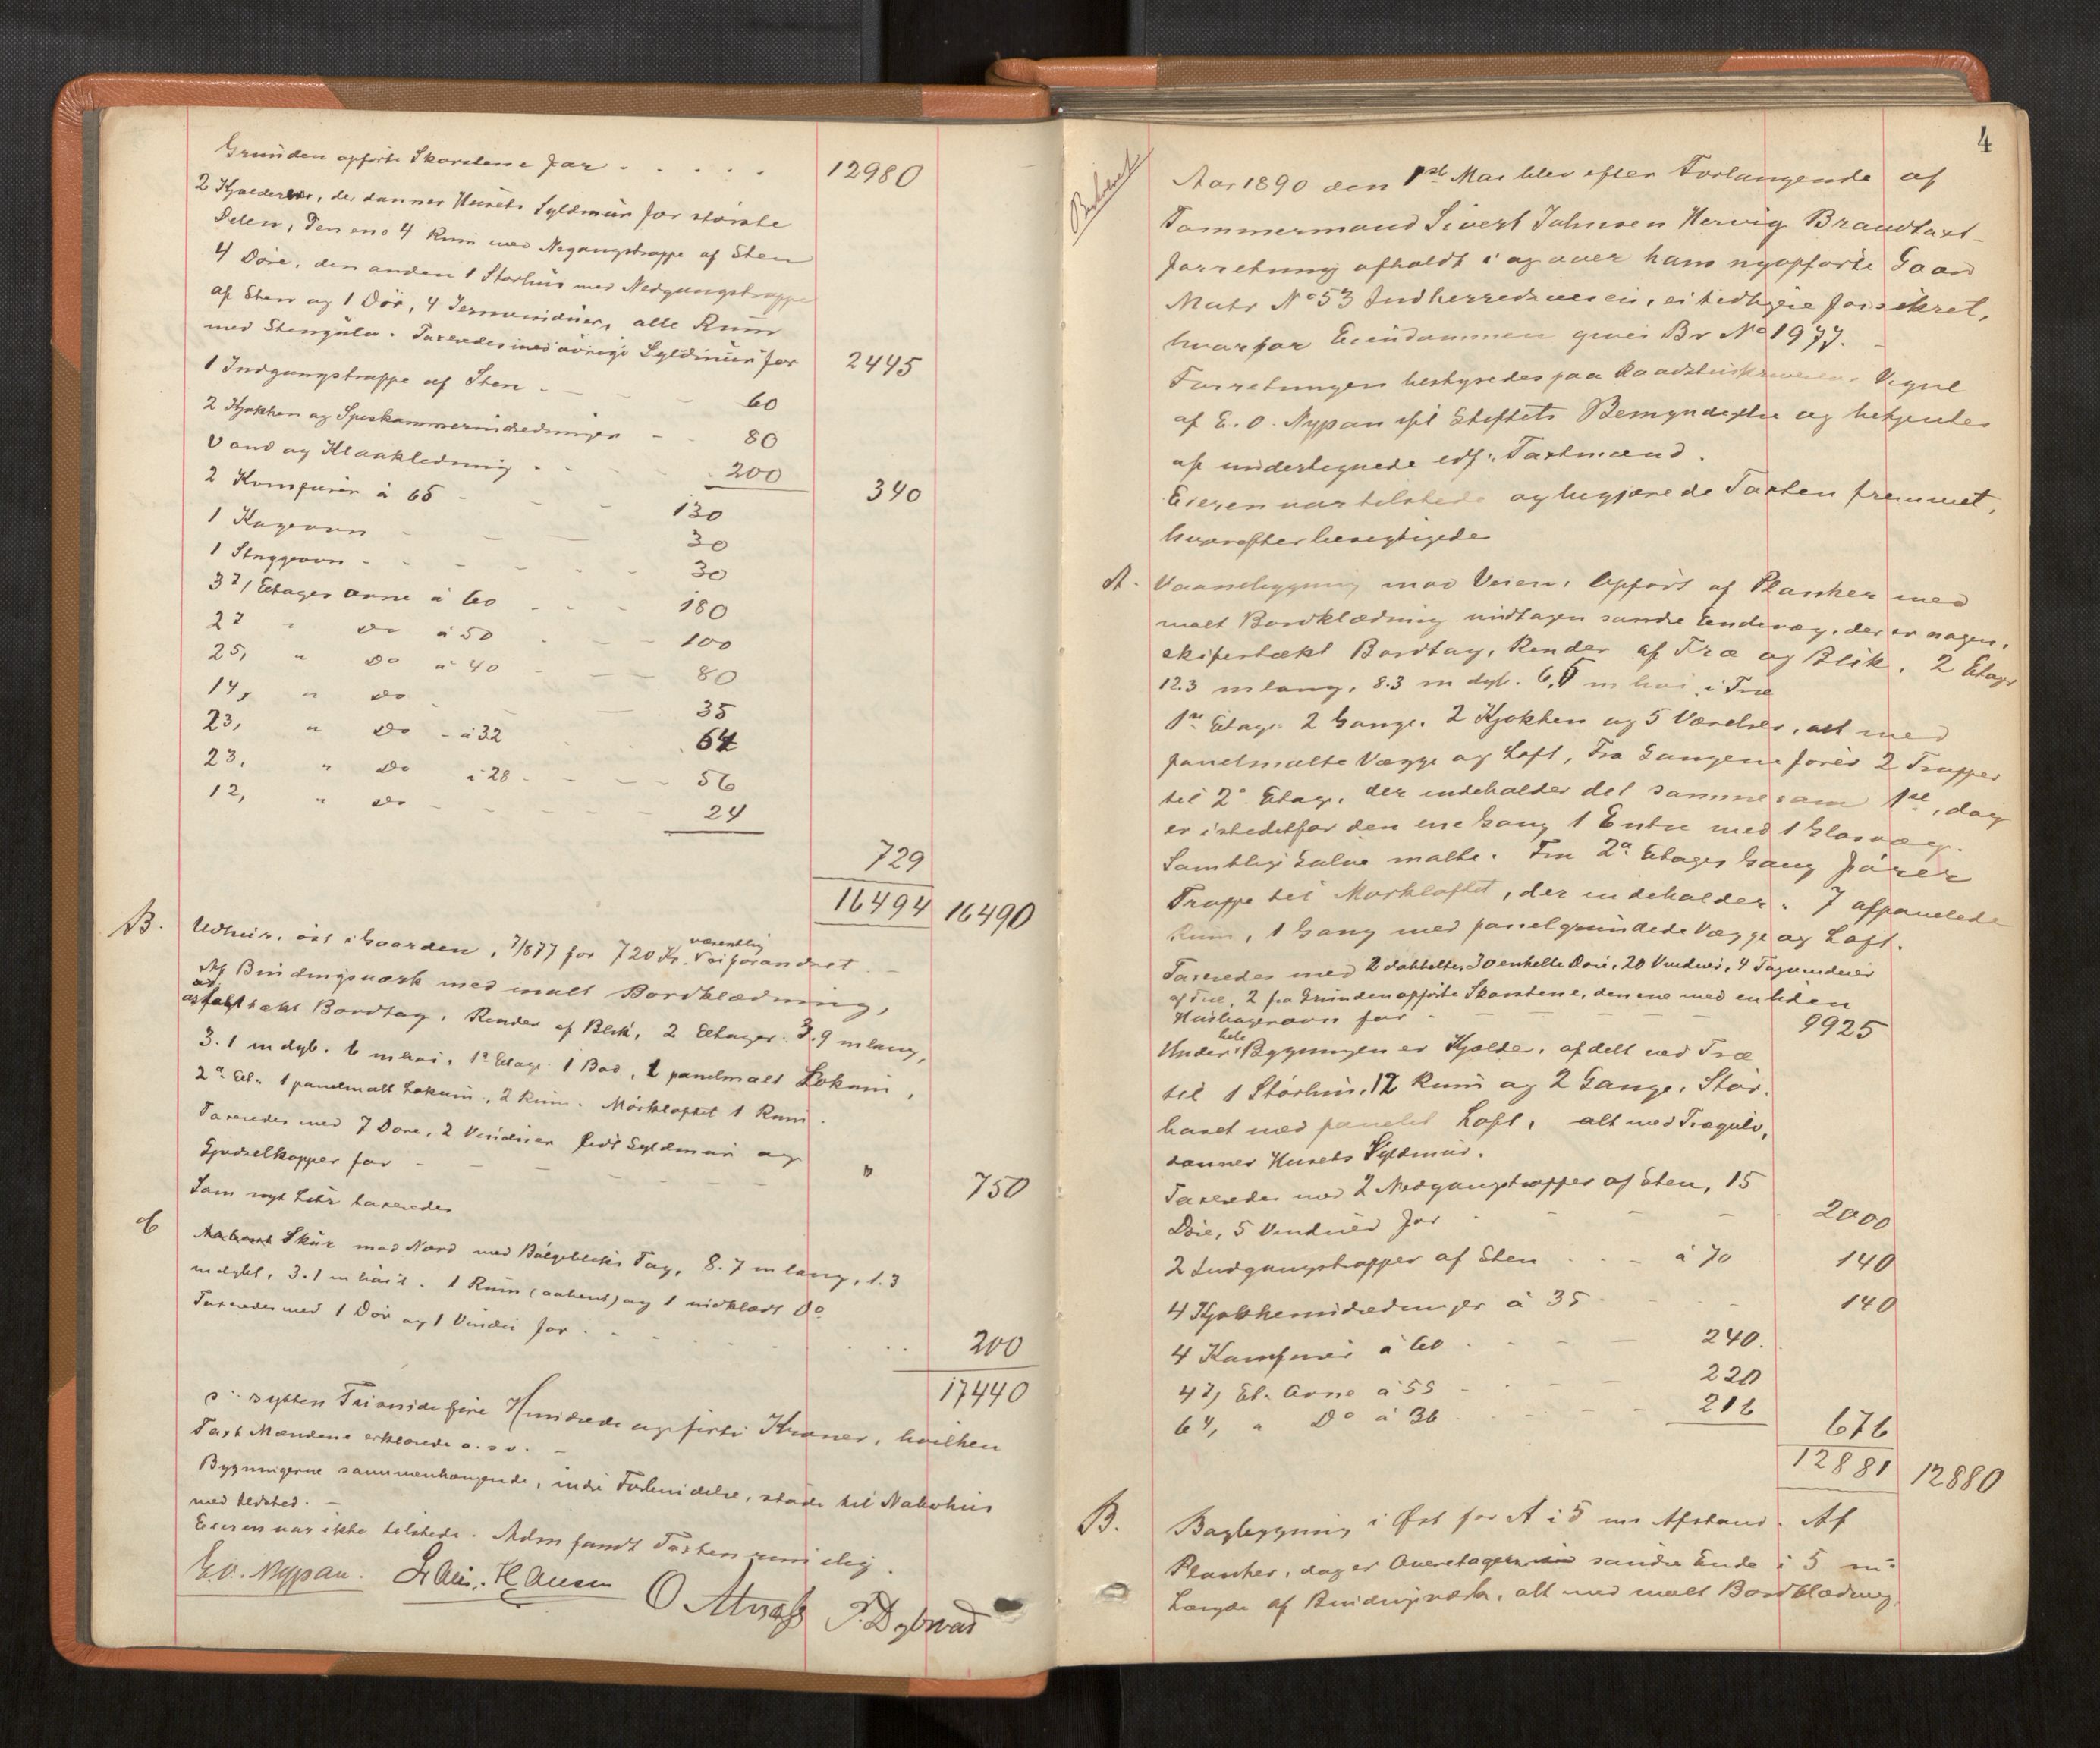 Grunden opførte Skorstene for - - - - - 12980
2 Kjældere, der danner Husets Syldmur for største
Delen, Den ene 4 Rum med Nedgangstrappe af Sten
4 Døre, den anden 1 Storhus med Nedgangstrappe
af Sten og 1 Dør, 4 Jernvinduer, alle Rum
med Stengulv. Taxeredes med øvrige Syldmur for 2445
1 Indgangstrappe af Sten - - - 60
2 Kjøkken og Spiskammerindredninger - - 80
Vand og Kloakledning - - - 200
340
2 Komfurer à 65 - - - 130
1 Kogeovn - - - 30
1 Stryggeovn - - - - - 30
3 3/ Etages Ovne à 60 - - - 180
2 2 " Do à 50 - - - 100
2 5, " Do à 40 - - - 80
1 4, " Do - - 35
2 3, " Do - à 32 - - 64
2 3, " Do à 28 - - - - 56
1 2, " Do - - - - - 24
729
16494 16490
B. Udhus, øst i Gaarden, 7/877 for 720 Kr. væsentlig forandret
Af Bindingsværk med malt Bordklædning,
asfalttækt Bordtag, Render af Blik, 2 Etager. 3.9 m lang,
3.1 m dyb. 6 m høi, 1e Etage 1 Bod, 1 panelmalt Lokum,
2a Et. 1 panelmalt Lokum, 2 Rum. Mørkloftet 1 Rum.
Taxeredes med 7 Døre, 2 Vinduer lidt Syldmur og
Gjødselkopper for - - - - - " 750
Som nyt Litr taxeredes
C Skur mod Nord med Bølgebliks Tag, 8.7 m lang, 1.3
m dybt, 3.1 m høit. 1 Rum (aabent) og 1 indklædt Do
Taxeredes med 1 Dør og 1 Vindu for - - - 200
17440
sytten Tusinde fire Hundrede og firti Kroner, hvilken
Taxt Mændene erklærede o. s. v. -
Bygningerne sammenhængende, indre Forbindelse, støde til Nabohus
med Ildsted. -
Eieren var ikke tilstede. Adm fandt Taxten rimelig.
E.O. Nypan. Hansen O Moxnæss P. Dybvad
4
Beskrevet
Aar 1890 den 1ste Mai blev efter Forlangende af
Tømmermand Sivert Johnsen Hervig Brandtaxt-
forretning afholdt i og over hans nyopførte Gaard
Matr No 53 Indherredsveien, ei tidligere forsikret,
hvorfor Eiendommen gives Br No 1977. -
Forretningen bestyredes paa Raadstuskriverens Vegne
af E. O. Nypan ifl Stiftets Bemyndigelse og betjentes
af undertegnede edf. Taxtmænd.
Eieren var tilstede og begjærede Taxten fremmet,
hvorefter besigtigede
A. Vaanebygning mod Veien, Opført af Planker med
malt Bordklædning undtagen søndre Endevæg, der er nøgen,
skifertækt Bordtag, Render af Træ og Blik. 2 Etager
12.3 m lang, 8.3 m dyb. 6,5 m høi i Træ
1ste Etage: 2 Gange, 2 Kjøkken og 5 Værelser, alt med
panelmalte Vægge og Loft, Fra Gangene fører 2 Trapper
til 2a Etage, der indeholder det samme som 1ste, dog
er istedetfor den ene Gang 1 Entre med 1 Glasvæg.
Samtlige Gulve malte. Fra 2a Etages Gang fører
Trappe til Mørkloftet, der indeholder: 7 afpanelede
Rum, 1 Gang med panelgrundede Vægge og Loft.
Taxeredes med 2 dobbelte, 30 enkelte Døre, 20 Vinduer, 4 Tagvinduer
af Træ, 2 fra Grunden opførte Skorstene, den ene med en liden
Husbageovn for - - - - - 9925
Under hele Bygningen er Kjælder, afdelt ved Træ
til 1 Storhus, 12 Rum og 2 Gange, Stor-
huset med panelet Loft, alt med Trægulv,
danner Husets Syldmur.
Taxeredes med 2 Nedgangstrapper af Sten, 15
Døre, 5 Vinduer for - - - - 2000
2 Indgangstrapper af Sten - - - à 70 140
4 Kjøkkenindredninger à 35 - - - 140
4 Komfurer à 60 - - - 240.
4 2, Et. Ovne à 55 - - - - 220
6 4, " Do à 36 - - - - 216
676
12881 12880
B. Bagbygning i Øst for A i 5 ms Afstand. Af
Planker, dog er Overetagens søndre Ende i 5 m:
Længde af Bindingsværk, alt med malt Bordklædning